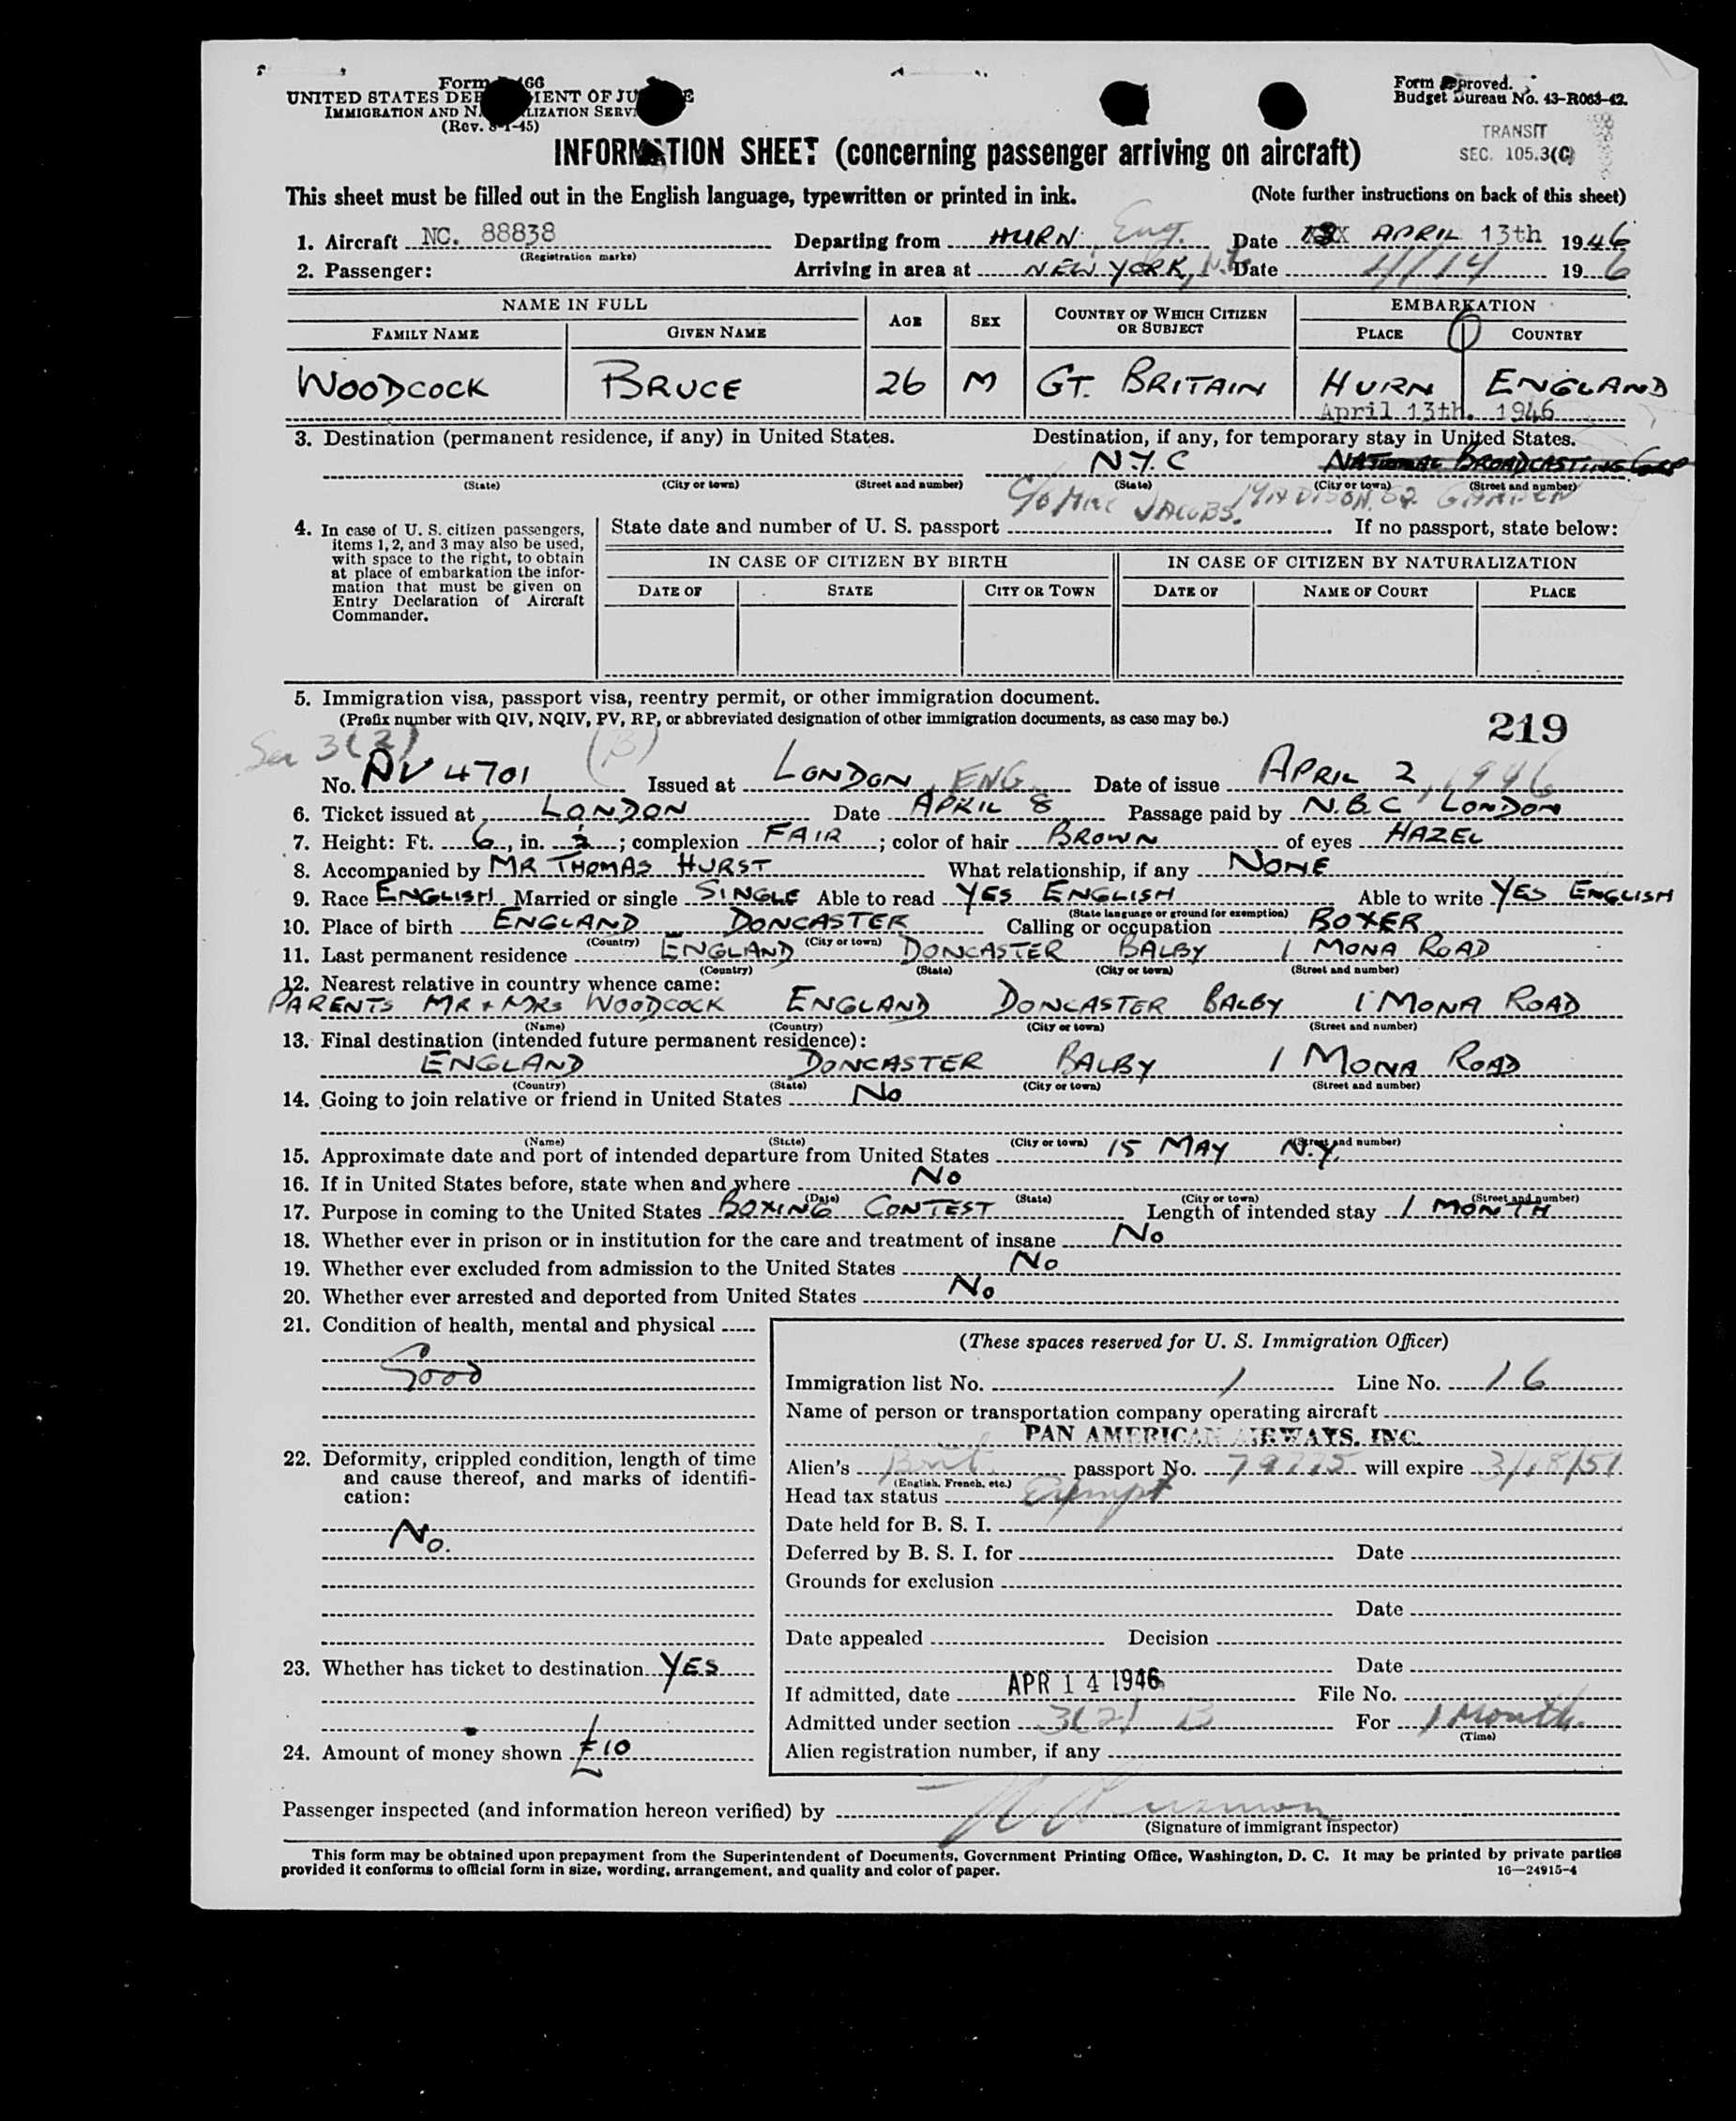 Form 466
UNITED STATES DEPARTMENT OF JUSTICE
IMMIGRATION AND NATURALIZATION SERVICE
(Rev. 8-1-45)
Form approved.
Budget Bureau No. 43-R063-42.
TRANSIT
SEC. 105.3(C)
INFORMATION SHEET (concerning passenger arriving on aircraft)
This sheet must be filled out in the English language, typewritten or printed in ink. (Note further instructions on back of this sheet)
1. Aircraft NC. 88838 Departing from HURN Eng. Date APRIL 13th 1946
(Registration marks)
2. Passenger: Arriving in area at NEW YORK, N.Y. Date 4/14 19 6
NAME IN FULL AGE SEX COUNTRY OF WHICH CITIZEN OR SUBJECT EMBARKATION
FAMILY NAME GIVEN NAME PLACE COUNTRY
WOODCOCK BRUCE 26 M GT. BRITAIN HURN ENGLAND
April 13th. 1946
3. Destination (permanent residence, if any) in United States. Destination, if any, for temporary stay in United States.
N.Y.C NATIONAL BROADCASTING CORP
(State) (City or town) (Street and number) (State) (City or town) (Street and number)
C/O MIKE JACOBS. MADISON SQ. GARDEN
4. In case of U. S. citizen passengers, items 1, 2, and 3 may also be used, with space to the right, to obtain at place of embarkation the information that must be given on Entry Declaration of Aircraft Commander.
State date and number of U. S. passport If no passport, state below:
IN CASE OF CITIZEN BY BIRTH IN CASE OF CITIZEN BY NATURALIZATION
DATE OF STATE CITY OR TOWN DATE OF NAME OF COURT PLACE
5. Immigration visa, passport visa, reentry permit, or other immigration document.
(Prefix number with QIV, NQIV, PV, RP, or abbreviated designation of other immigration documents, as case may be.)
219
Sec 3(2) (B)
No. NV 4701 Issued at LONDON, ENG. Date of issue APRIL 2, 1946
6. Ticket issued at LONDON Date APRIL 8 Passage paid by N.B.C LONDON
7. Height: Ft. 6, in. ; complexion FAIR; color of hair BROWN of eyes HAZEL
8. Accompanied by MR THOMAS HURST What relationship, if any NONE
9. Race ENGLISH Married or single SINGLE Able to read YES ENGLISH Able to write YES ENGLISH
(State language or ground for exemption)
10. Place of birth ENGLAND DONCASTER Calling or occupation BOXER
(Country) (City or town)
11. Last permanent residence ENGLAND DONCASTER BALBY 1 MONA ROAD
(Country) (State) (City or town) (Street and number)
12. Nearest relative in country whence came:
PARENTS MR + MRS WOODCOCK ENGLAND DONCASTER BALBY 1 MONA ROAD
(Name) (Country) (City or town) (Street and number)
13. Final destination (intended future permanent residence):
ENGLAND DONCASTER BALBY 1 MONA ROAD
(Country) (State) (City or town) (Street and number)
14. Going to join relative or friend in United States NO
(Name) (State) (City or town) (Street and number)
15. Approximate date and port of intended departure from United States 15 MAY N.Y.
16. If in United States before, state when and where NO
(Date) (State) (City or town) (Street and number)
17. Purpose in coming to the United States BOXING CONTEST Length of intended stay 1 MONTH
18. Whether ever in prison or in institution for the care and treatment of insane NO
19. Whether ever excluded from admission to the United States NO
20. Whether ever arrested and deported from United States NO
21. Condition of health, mental and physical
GOOD
22. Deformity, crippled condition, length of time and cause thereof, and marks of identification:
NO.
23. Whether has ticket to destination YES
24. Amount of money shown £10
(These spaces reserved for U. S. Immigration Officer)
Immigration list No. 1 Line No. 16
Name of person or transportation company operating aircraft
PAN AMERICAN AIRWAYS, INC.
Alien's Brit. passport No. 79775 will expire 3/18/51
(English, French, etc.)
Head tax status Exempt
Date held for B. S. I.
Deferred by B. S. I. for Date
Grounds for exclusion
Date
Date appealed Decision
Date
If admitted, date APR 14 1946 File No.
Admitted under section 3(2) B For 1 Month.
(Time)
Alien registration number, if any
Passenger inspected (and information hereon verified) by
(Signature of immigrant inspector)
This form may be obtained upon prepayment from the Superintendent of Documents, Government Printing Office, Washington, D. C. It may be printed by private parties
provided it conforms to official form in size, wording, arrangement, and quality and color of paper. 16—24915-4